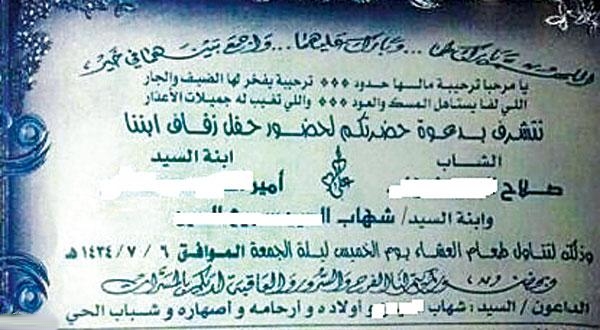 اللهم بارك لهما... وبارك عليهما... واجمع بينهما في خير
يا مرحبا ترحيبة مالها حدود *** ترحيبة يفخر لها الضيف والجار
اللي لفا يستاهل المسك والعود *** واللي تغيب له جميلات الأعذار
نتشرف بدعوة حضرتكم لحضور حفل زفاف ابننا
الشاب ابنة السيد
صلاح أمير
وابنة السيد/ شهاب
وذلك لتناول طعام العشاء يوم الخميس ليلة الجمعة الموافق ٦ / ٧ / ١٤٣٤هـ
وبحضوركم لنا الفرح والسرور والعاقبة لديكم بالمسرات
الداعون / السيد: شهاب وأولاده و أرحامه و أصهاره و شباب الحي